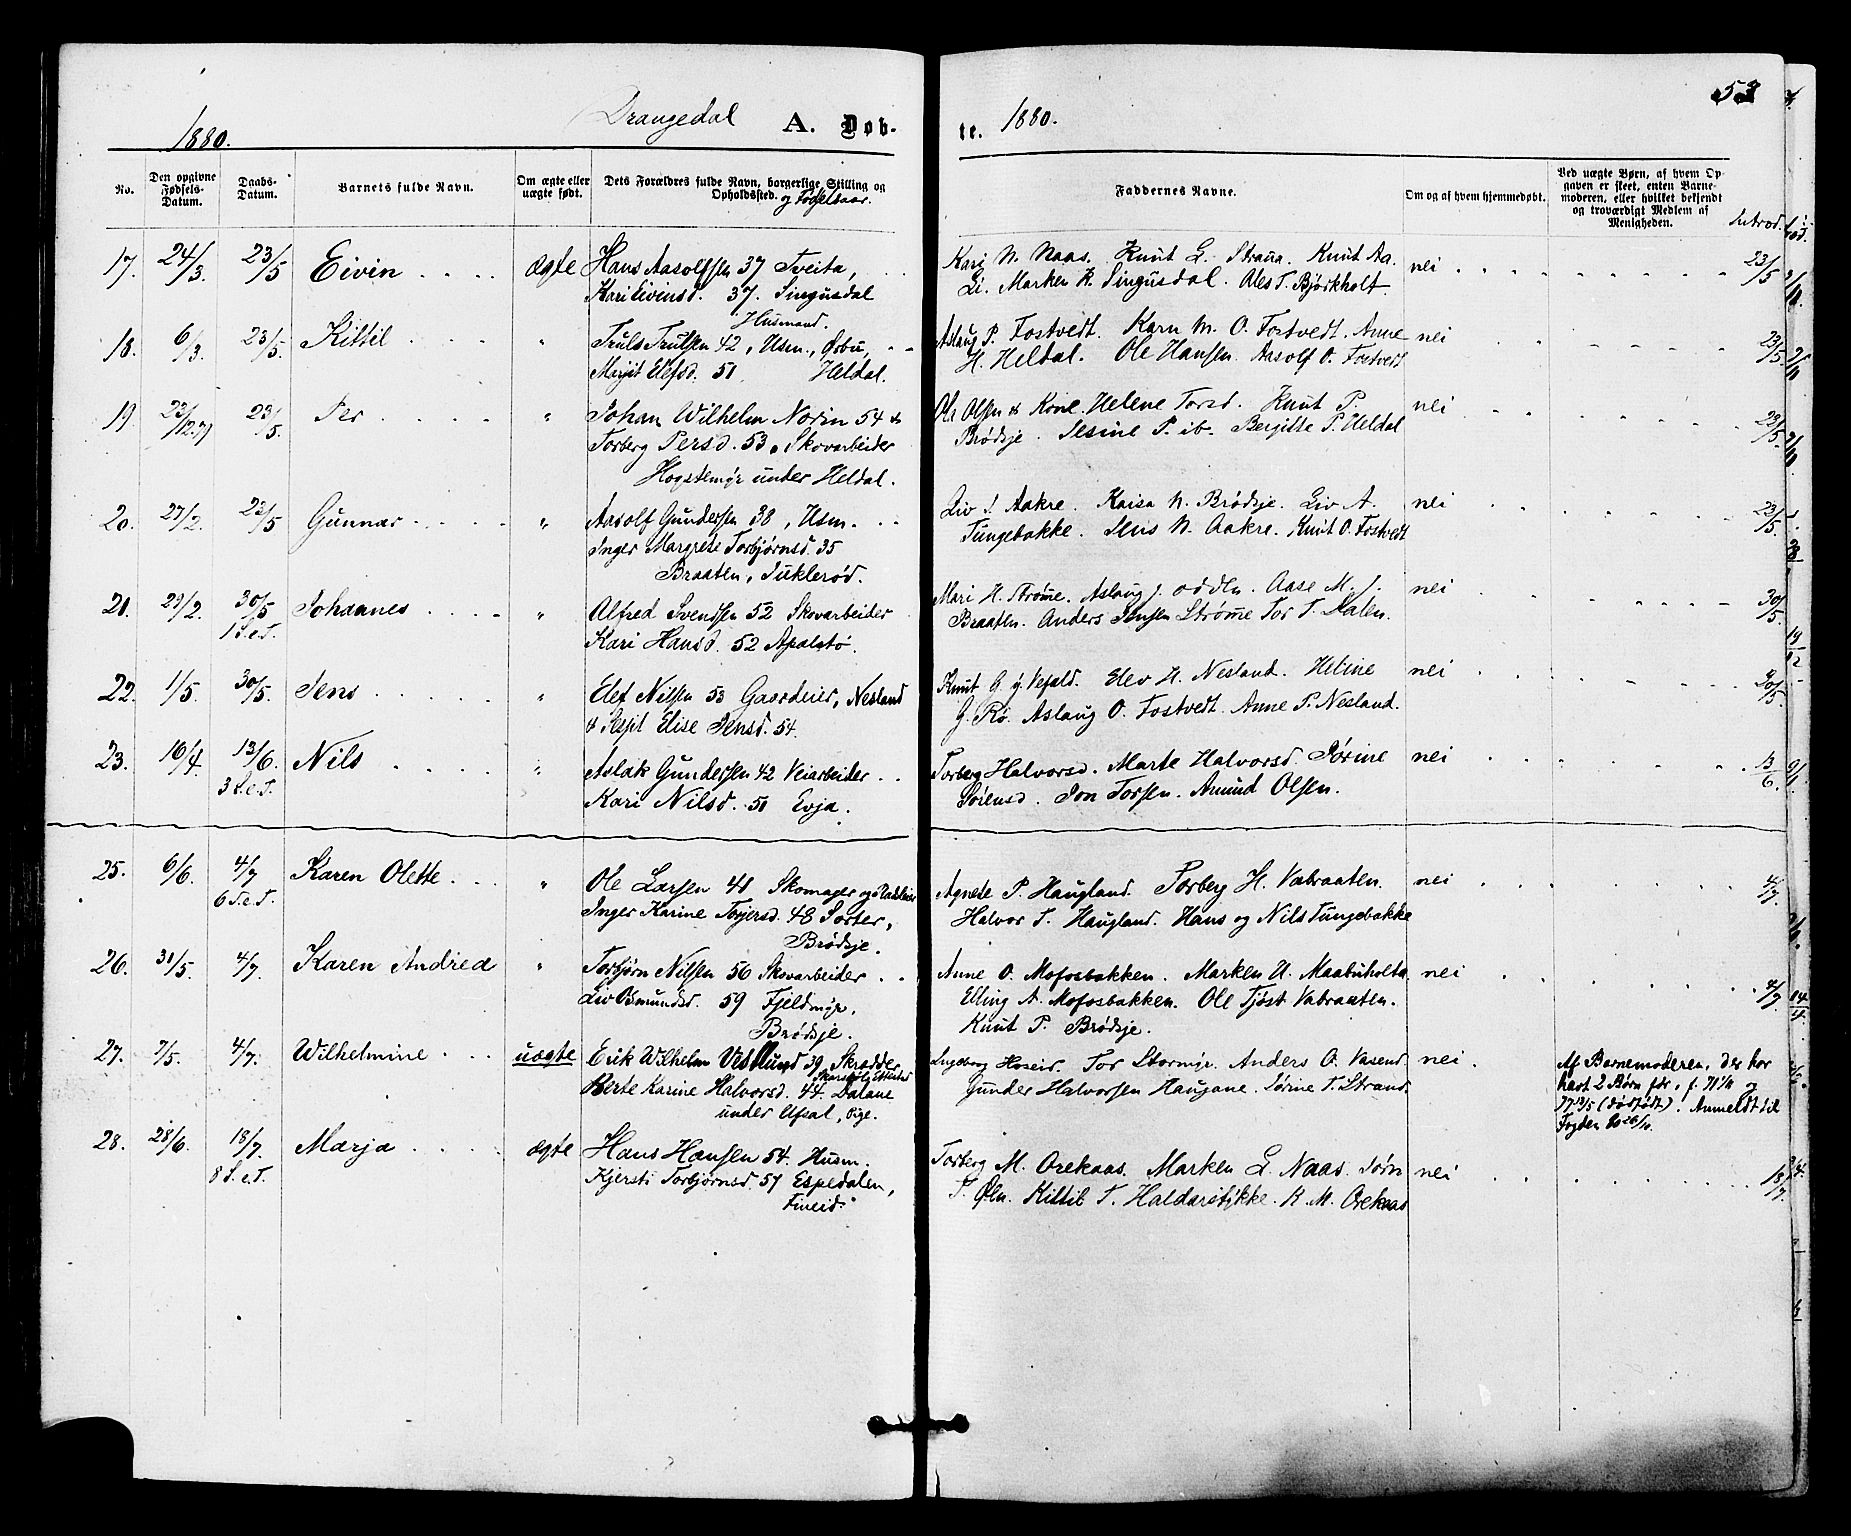 53
1880. Drangedal A. Døb- te. 1880.
No. Den opgivne Fødsels-Datum. Daabs-Datum. Barnets fulde Navn. Om ægte eller uægte født. Dets Forældres fulde Navn, borgerlige Stilling og Opholdssted. og Fødselsaar. Faddernes Navne. Om og af hvem hjemmedøbt. Ved uægte Børn, af hvem Opgaven er skeet, enten Barnemoderen, eller hvilket bekjendt og troværdigt Medlem af Menigheden. Introd.
17. 24/3. 23/5 Eivin . . . . ægte Hans Aasolfsen 37 Tveita, Kari N. Naas. Knut L. Straua. Knut Aa. nei 23/5
Kari Eivinsd. 37. Singusdal Li. Marken K. Singusdal. Oles T. Bjørkholt.
Husmand.
18. 6/3. 23/5. Kittil . . . . " Truls Trulsen 42, Husm., Ørbu, Aslaug P. Fostvedt. Karn M. O. Fostvedt. Anne nei 23/5.
Marjit Elefsd. 51. Heldal. H. Heldal. Ole Hansen. Aasolf O. Fostvedt
19 23/12.79 23/5. Per . . . . " Johan Wilhelm Norin 54 & Ole Olsen & Kone Helene Torsd. Knut P. nei 23/5.
Torberg Persd. 53, Skovarbeider Brødsje. Sesine P. ib. Bergitte P. Heldal
Hogstemyr under Heldal.
20. 27/2. 23/5 Gunnar . . . . " Aasolf Gundersen 38, Husm. Liv S. Aakre. Kaisa N. Brødsje. Liv A. nei 23/5.
Inger Margrete Torbjørnsd. 35 Tungebakke. Jens N. Aakre. Knut O. Fostvedt
Braaten, Suklerød.
21. 29/2. 30/5 Johannes . . . . " Alfred Svendsen 52 Skovarbeider Mari H. Strøme. Aslaug J. Odden. Aase M. J. nei 30/5.
1 S.e.T. Kari Hansd. 52 Apalstø. Braaten. Anders Jensen Strøme Tor T. Dalen.
22. 1/5. 30/5. Jens . . . . " Elef Nilsen 53 Gaardeier, Nesland Knut G. Vefald. Elev H. Nesland. Heline nei 30/5.
& Elise Jensd. 54. G. Rø. Aslaug O. Fostvedt. Anne P. Nesland.
23. 16/4. 13/6. Nils . . . . " Aslak Gundersen 42 Veiarbeider . . Torberg Halvorsd. Marte Halvorsd. Sørine nei 13/6.
3 S.e.T. Kari Nilsd. 51 Evja. Sørensd. Jon Torsen. Amund Olsen.
25. 6/6. 4/7 Karen Olette . . . " Ole Larsen 41 Skomager og Agnete P. Haugland. Torberg H. Vabraaten. nei 4/7.
6 S.e.T. Inger Karine Torjersd. 48 Sorter, Halvor T. Haugland. Hans og Nils Tungebakke
Brødsje.
26. 31/5. 4/7. Karen Andrea " Torbjørn Nilsen 56 Skovarbeider . . Anne O. Mofosbakken. Marken H. Maabuholta nei 4/7
Liv Osmundsd. 59 Fjeldmyr, Elling A. Mofosbakken. Ole Tjøst. Vabraaten.
Brødsje. Knut P. Brødsje.
27. 7/5. 4/7. Wilhelmine . . . uægte Erik Wilhelm Vestlund 39 Skrædder Ingeborg Hoseid. Tor Stormyr. Anders O. Vasend. nei. Af Barnemoderen, der har
Berte Karine Halvorsd. 44. Dalane Gunder Halvorsen Haugane. Sørine T. Strand. havt 2 Børn før, f. 71 og
under Ufsal, Pige. 77 (dødfødt). Anmeldt til
Fogden 80 26/10.
28. 28/6. 18/7. Marja . . . . ægte Hans Hansen 54. Husm. Torberg M. Orekaas. Marken L. Naas. Jørn nei 18/7.
8 S.e.T. Kjersti Torbjørnsd. 57 Espedalen, T. Øen. Kittil T. Haldorstykke. K. M. Orekaas
Fineid.